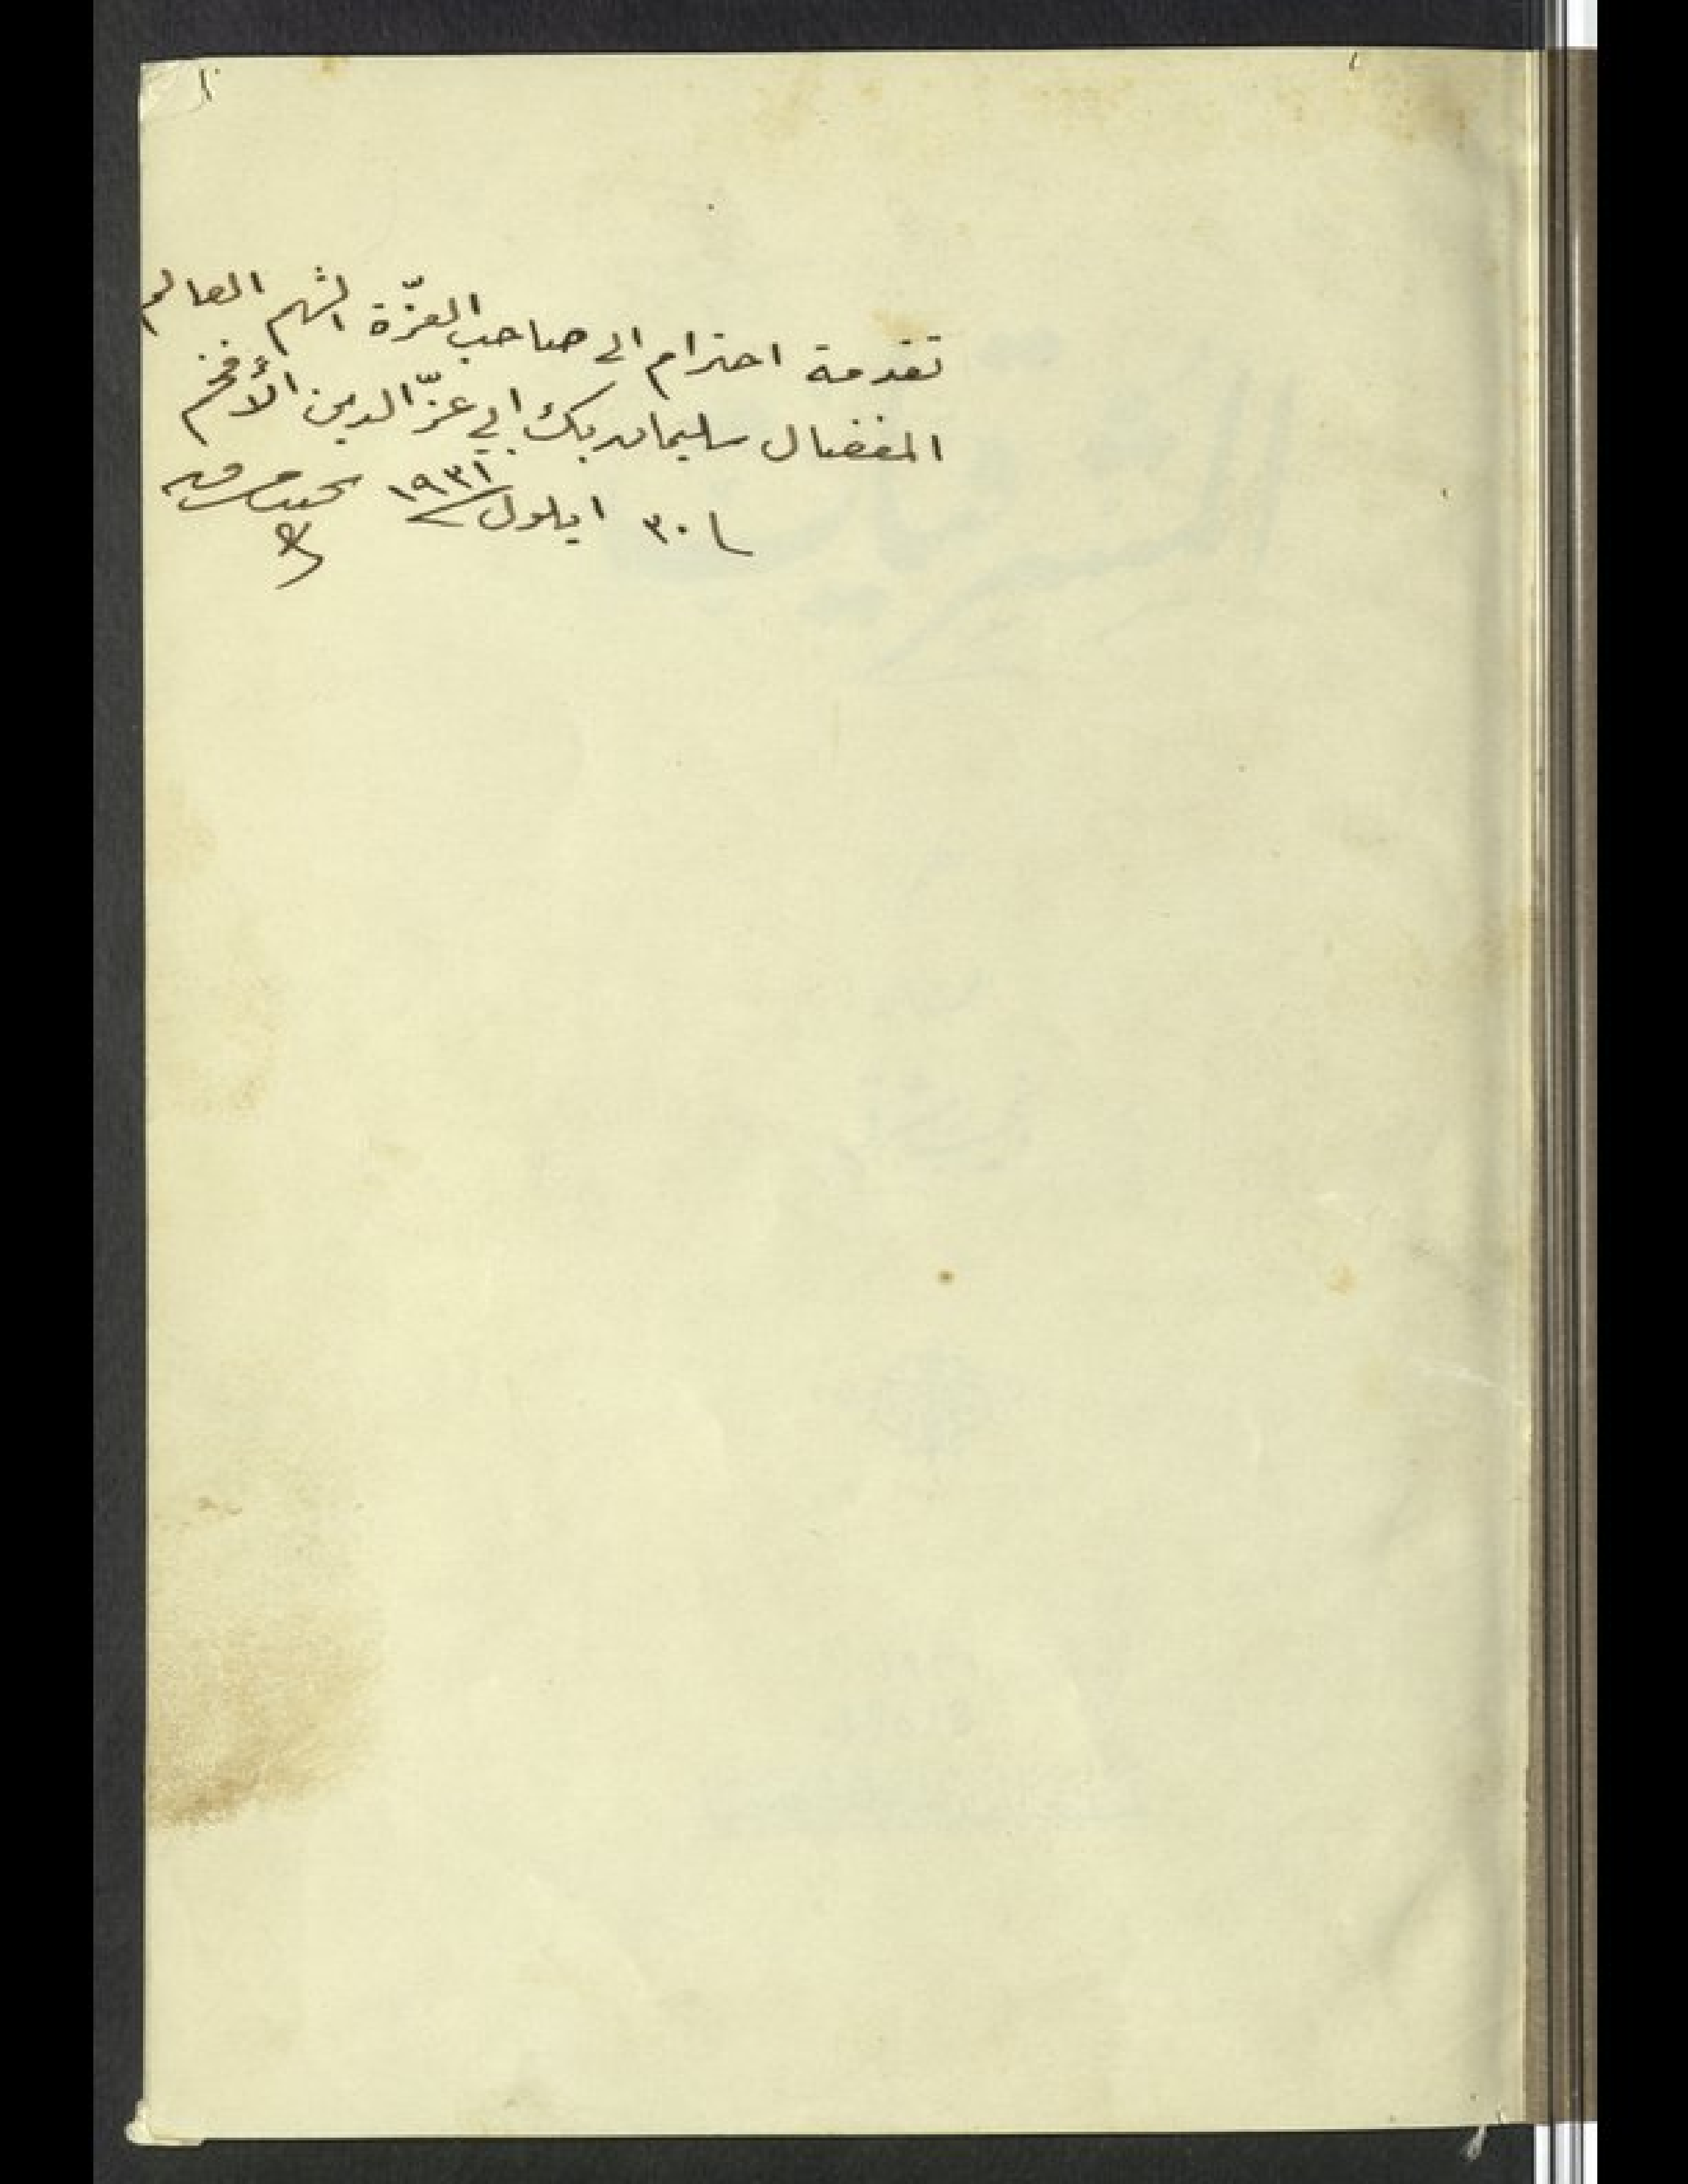 تقدمة احترام الى صاحب العزّة الشهم العالم
المفضال سليمان بك ابي عزّ الدين الأفخم
٣٠ ايلول ١٩٣١